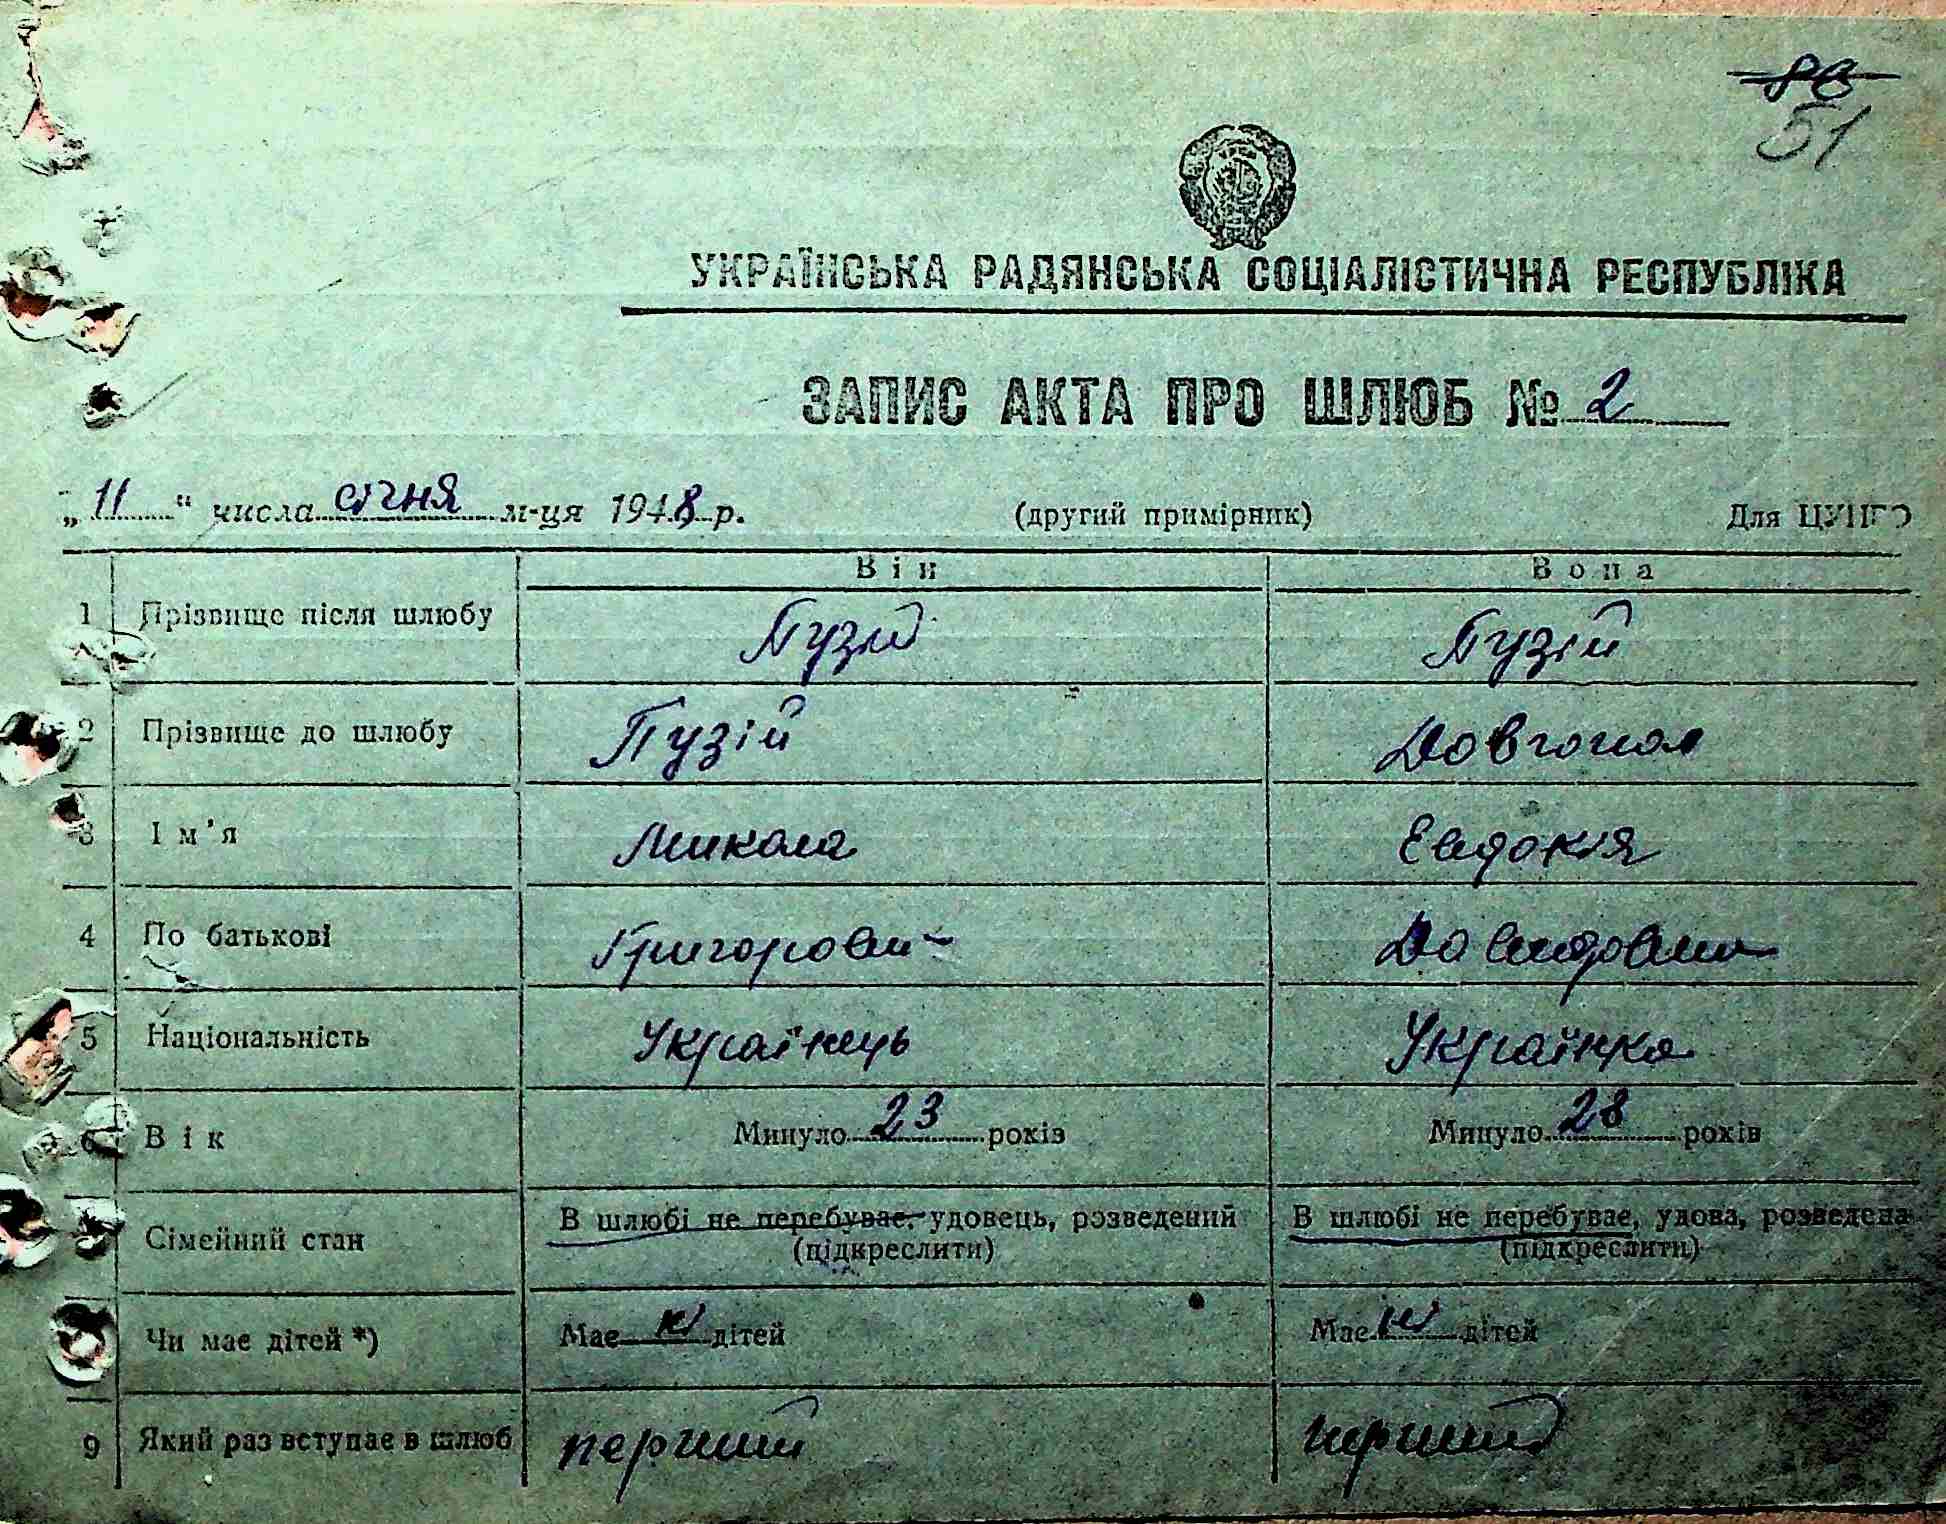 51
УКРАЇНСЬКА РАДЯНСЬКА СОЦІАЛІСТИЧНА РЕСПУБЛІКА
ЗАПИС АКТА ПРО ШЛЮБ № 2
„11“ числа січня м-ця 1948 р. (другий примірник) Для ЦУНГО
Він Вона
1 Прізвище після шлюбу Пузій Пузій
2 Прізвище до шлюбу Пузій Довгопол
3 Ім'я Микола Евдокія
4 По батькові Григорович Давидовна
5 Національність Українець Українка
6 Вік Минуло 23 років Минуло 28 років
Сімейний стан В шлюбі не перебуває, удовець, розведений В шлюбі не перебуває, удова, розведена
(підкреслити) (підкреслити)
Чи має дітей *) Має ні дітей Має ні дітей
9 Який раз вступає в шлюб перший перший